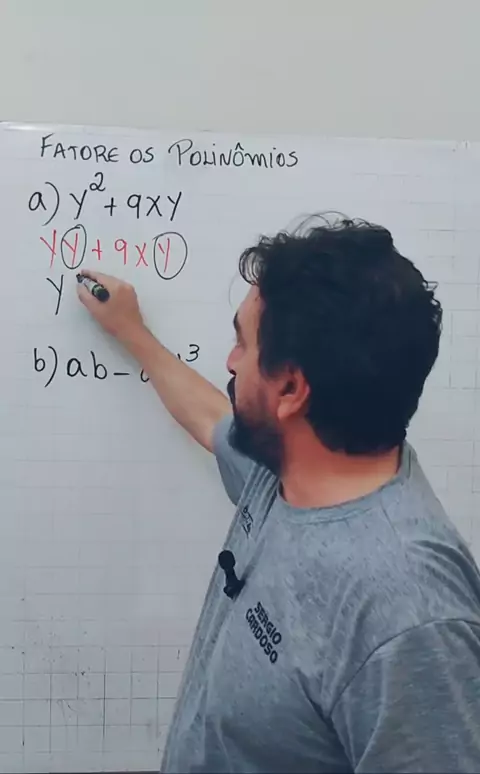 FATORE OS POLINÔMIOS
a) y² + 9xy
yy + 9xy
y
b) ab - ³
SERGIO
CARDOSO